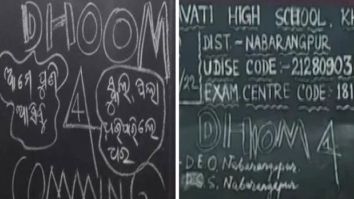 DHOOM
ଆମେ ପୁଣି
ଆସିବୁ
4
ସ୍କୁଲ ପିଲା
ଘର
COMMING
VATI HIGH SCHOOL, K
DIST - NABARANGPUR
UDISE CODE:-21280903
/22
EXAM CENTRE CODE: 181
DHOOM 4
DEO, Nabarangpur.
S. Nabarangpur